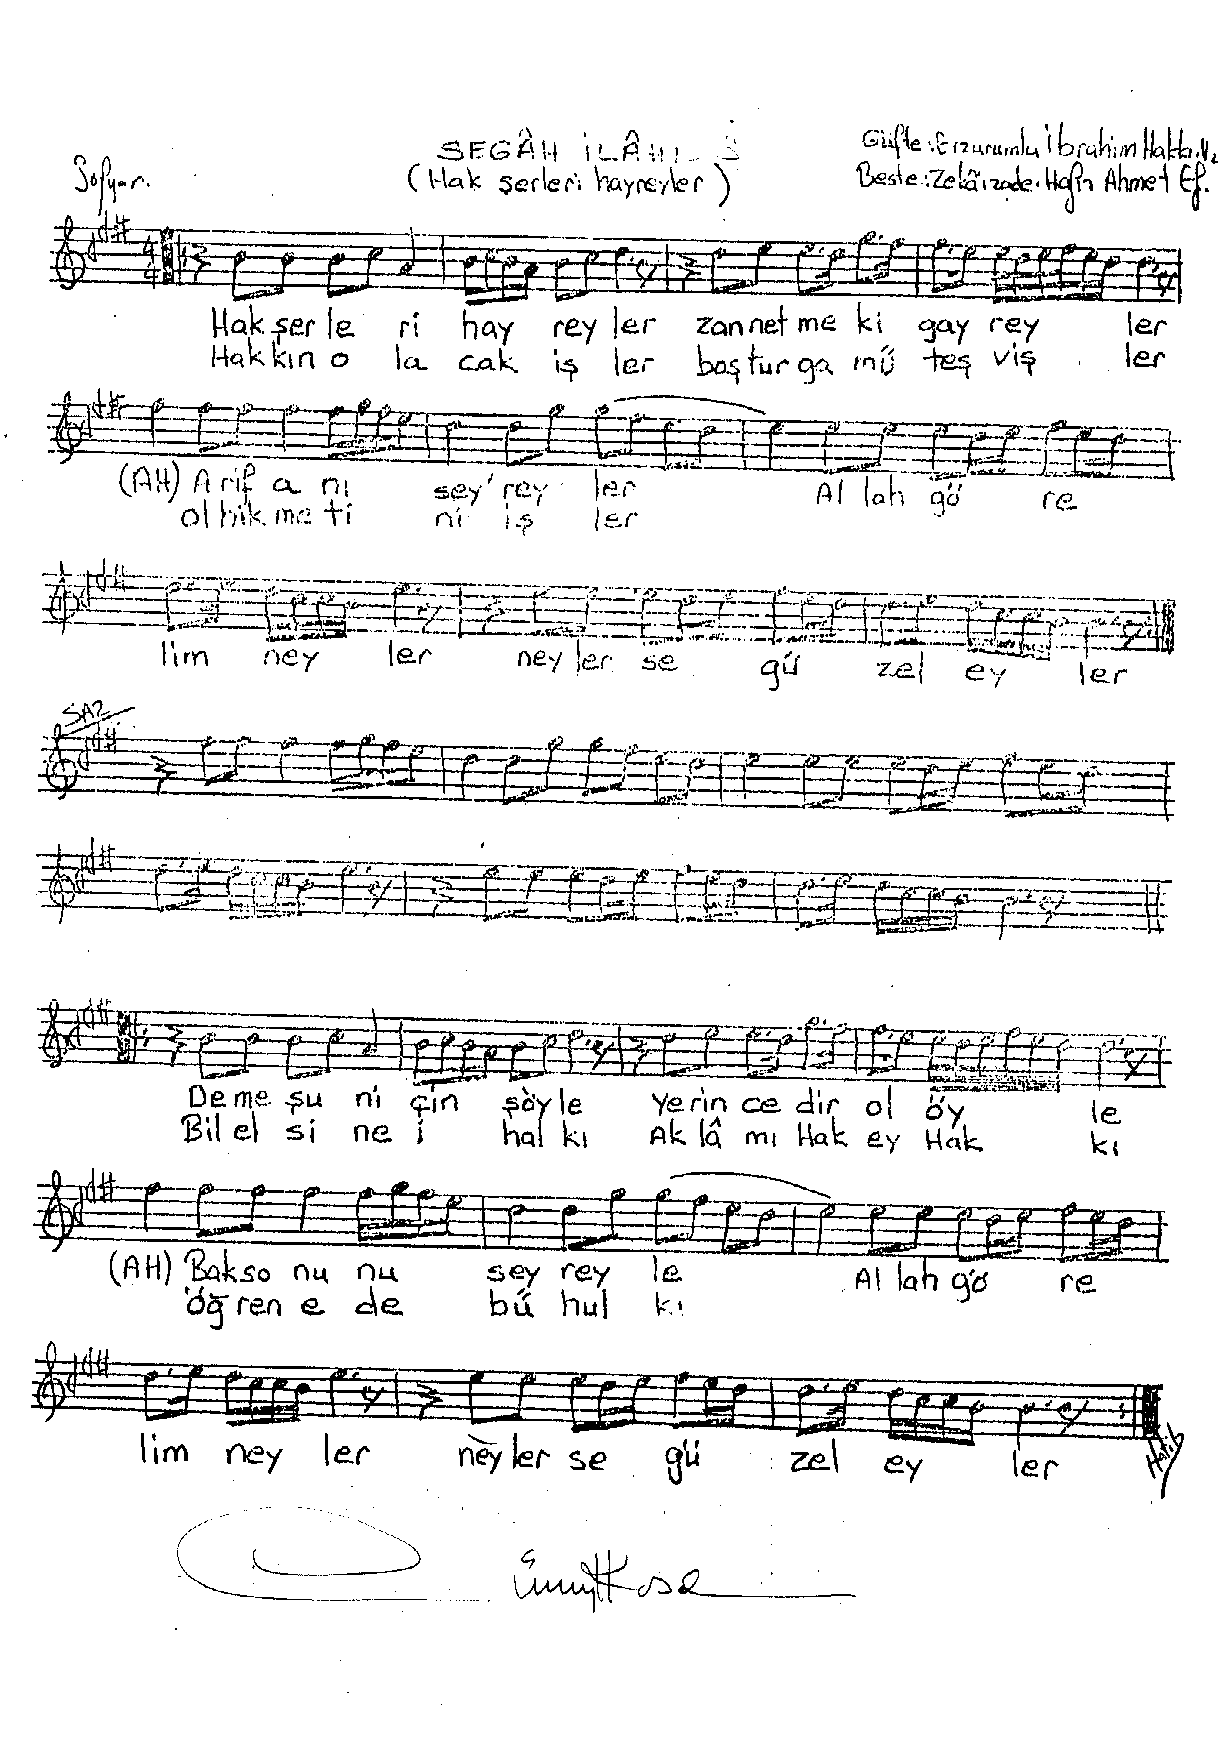 SEGÂH İLÂHİ
Güfte: Erzurumlu İbrahim Hakkı Hz.
Sofyan.
(Hak şerleri hayreyler)
Beste: Zekâizade Hafız Ahmet Ef.
4
4
Hak şer le ri hay rey ler zan net me ki gay rey ler
Hak kın o la cak iş ler boş tur ga mü teş viş ler
(AH) A rif a nı sey' rey ler Al lah gö re
ol hik me ti ni iş ler
lim ney ler ney ler se gü zel ey ler
SAZ
De me şu ni çin şöy le Yerin ce dir ol öy le
Bil el si ne i hal kı Ak lâ mı Hak ey Hak kı
(AH) Bak so nu nu sey rey le Al lah gö re
Öğ ren e de bü hul kı
lim ney ler ney ler se gü zel ey ler
Hatib